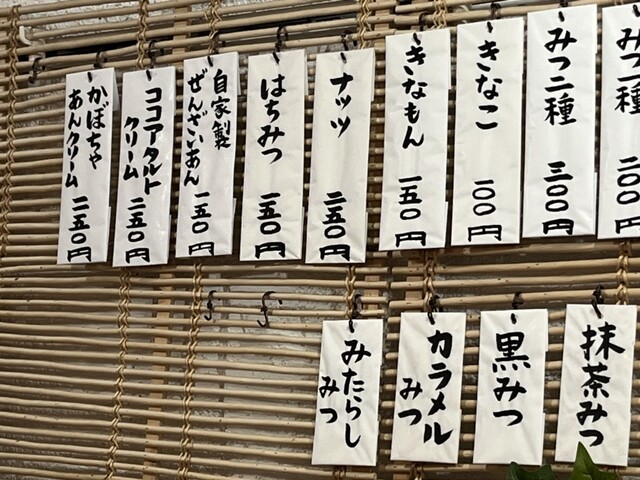 みつ一種 二〇〇円
みつ二種 三〇〇円
きなこ 一〇〇円
きなもん 一五〇円
ナッツ 二五〇円
はちみつ 一五〇円
自家製
ぜんざいあん 一五〇円
ココアタルト
クリーム 二五〇円
かぼちゃ
あんクリーム 二五〇円
抹茶みつ
黒みつ
カラメル
みつ
みたらし
みつ